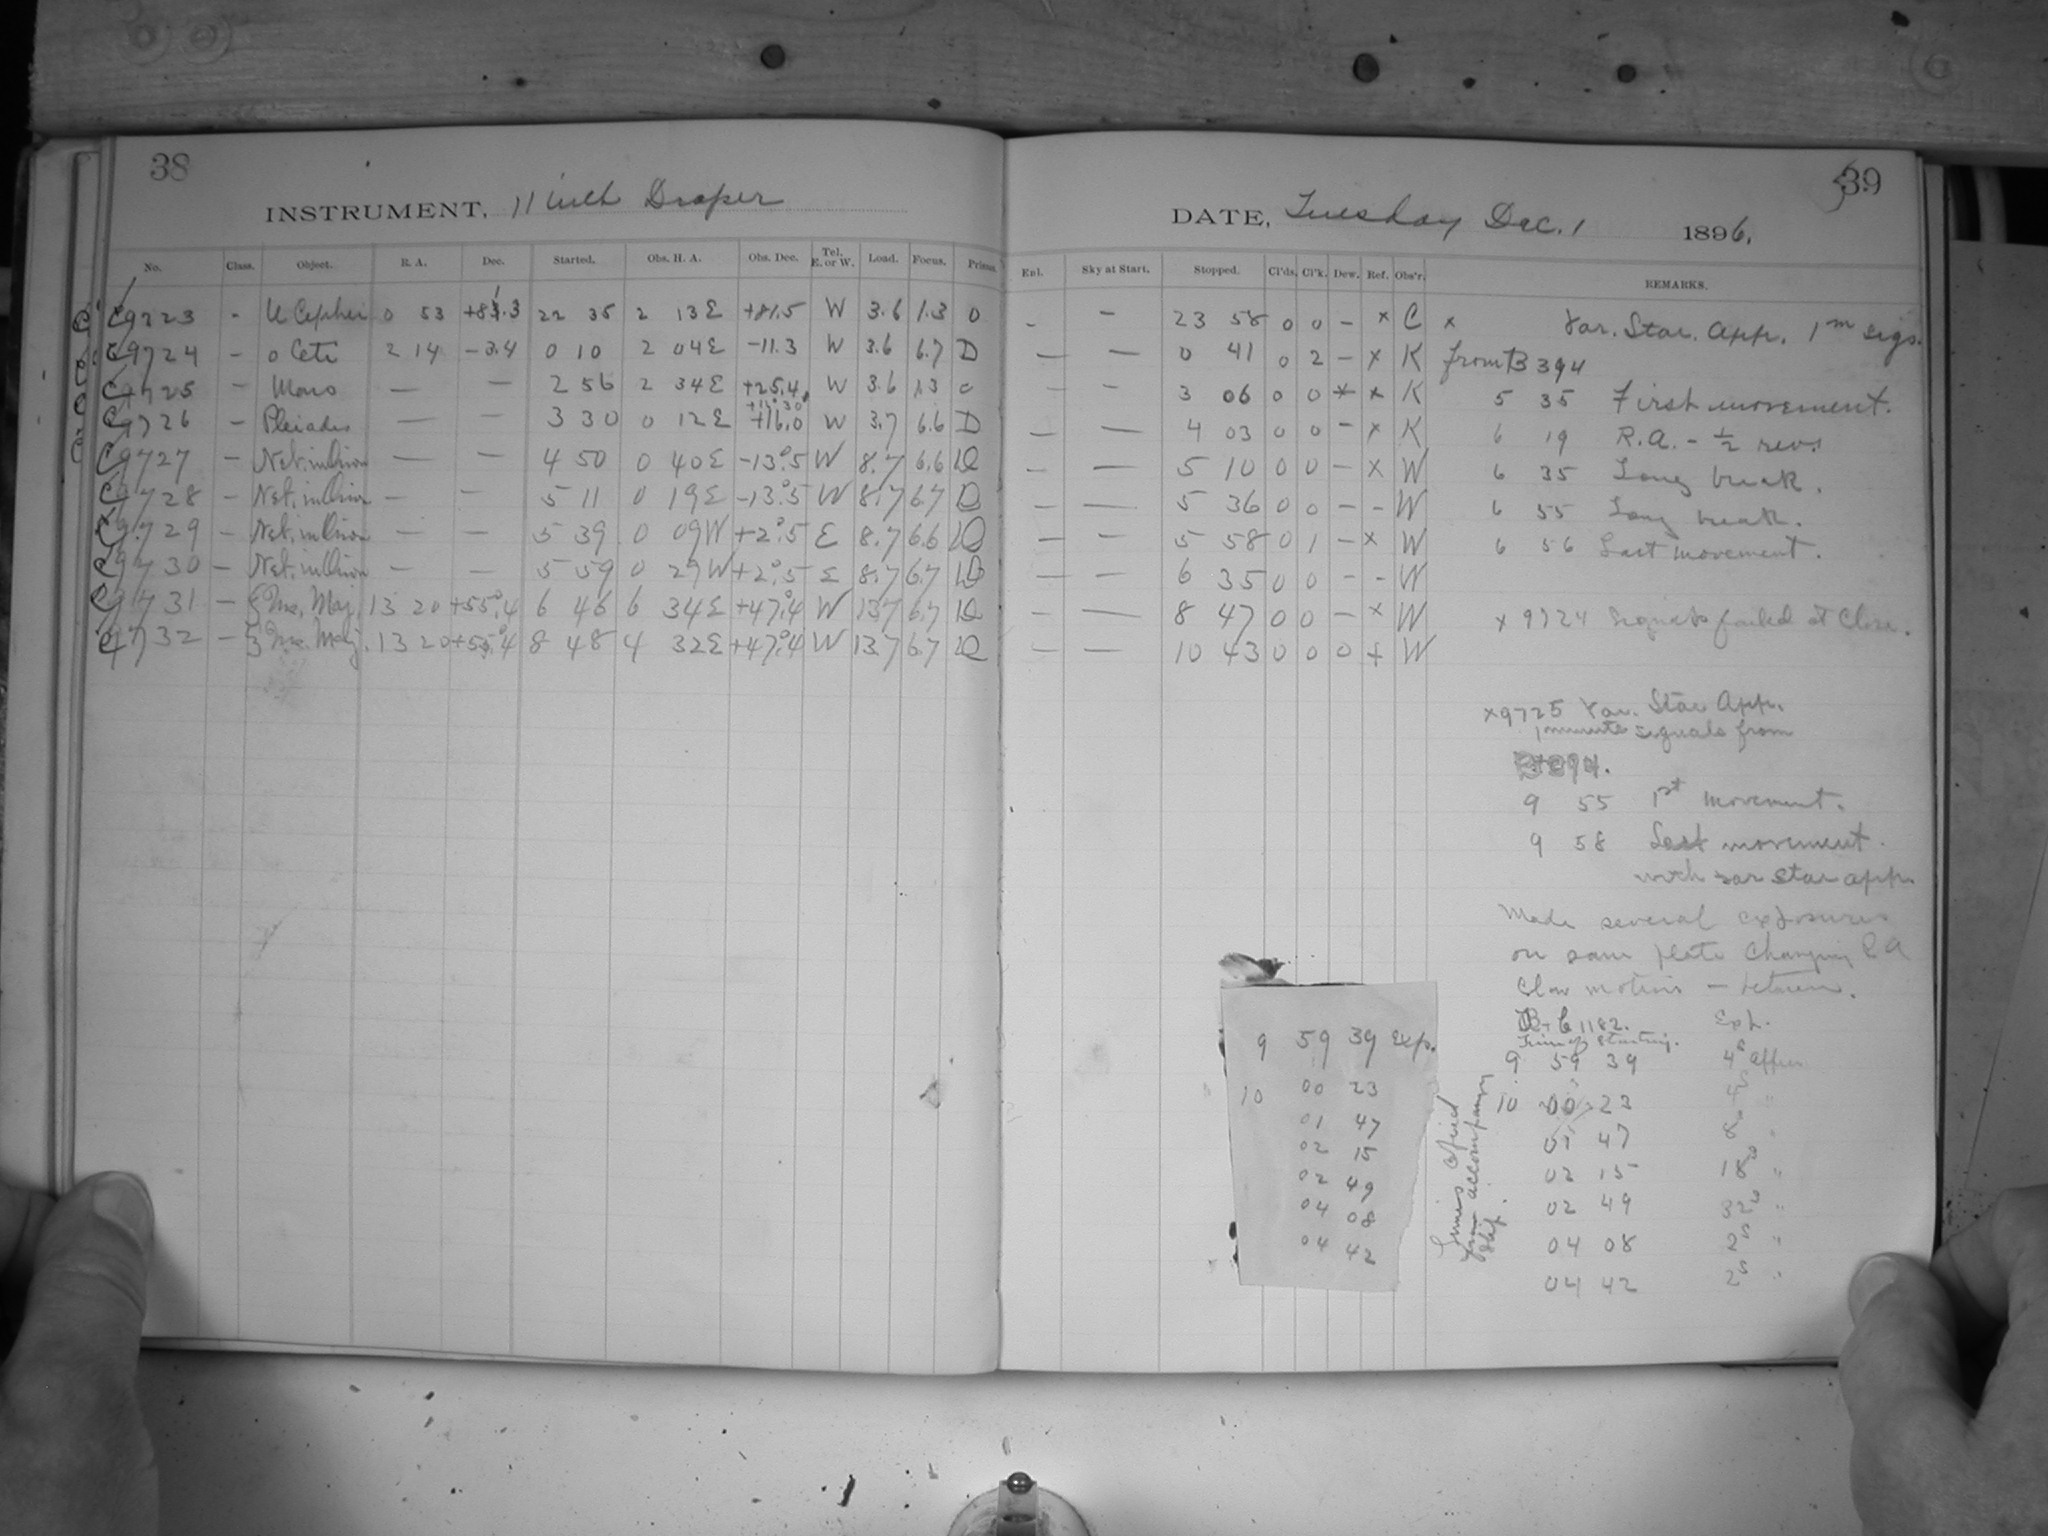 38
INSTRUMENT, 11 inch Draper
No. Class. Object. R. A. Dec. Started. Obs. H. A. Obs. Dec. Tel. E. or W. Load. Focus. Prisms
C9723 - U Cephei 0 53 +81.3 22 35 2 13E +81.5 W 3.6 1.3 0
C9724 - o Ceti 2 14 -3.4 0 10 2 04E -11.3 W 3.6 6.7 D
C9725 - Mars — — 2 56 2 34E +25.4 W 3.6 1.3 0
C9726 - Pleiades — — 3 30 0 12E +16.0 W 3.7 6.6 D
C9727 - Neb. in Orion — — 4 50 0 40E -13°.5 W 8.7 6.6 D
C9728 - Neb. in Orion — — 5 11 0 19E -13°.5 W 8.7 6.7 D
C9729 - Neb. in Orion — — 5 39 0 09W +2°.5 E 8.7 6.6 D
C9730 - Neb. in Orion — — 5 59 0 29W +2°.5 E 8.7 6.7 D
C9731 - ζ Urs. Maj. 13 20 +55°.4 6 46 6 34E +47°.4 W 13.7 6.7 D
C9732 - ζ Urs. Maj. 13 20 +55°.4 8 48 4 32E +47°.4 W 13.7 6.7 D
39
DATE, Tuesday Dec. 1 1896.
Enl. Sky at Start. Stopped. Cl'ds. Cl'k. Dew. Ref. Obs'r. REMARKS.
- — 23 58 0 0 - x C x Var. Star. App. 1m sigs.
— — 0 41 0 2 - x K from B 394
- — 3 06 0 0 * x K 5 35 First movement.
— — 4 03 0 0 - x K 6 19 R.A. - ½ revs.
— — 5 10 0 0 - x W 6 35 Long break.
- — 5 36 0 0 - - W 6 55 Long break.
— — 5 58 0 1 - x W 6 56 Last movement.
— — 6 35 0 0 - - W
— — 8 47 0 0 - x W x 9724 Signals failed at Close.
— — 10 43 0 0 0 + W
x9725 Var. Star App.
1 minute signals from
9 55 1st movement.
9 58 Last movement.
with var star app.
Made several exposures
on same plate Changing R A
Slow motion — between.
B + C 1182. Exp.
Time of Starting.
9 59 39 4s
10 00 23 4s "
01 47 8s "
02 15 18s "
02 49 32s "
04 08 2s "
04 42 2s "
Times copied
from accompanying
slip.
9 59 39 Exp.
10 00 23
01 47
02 15
02 49
04 08
04 42